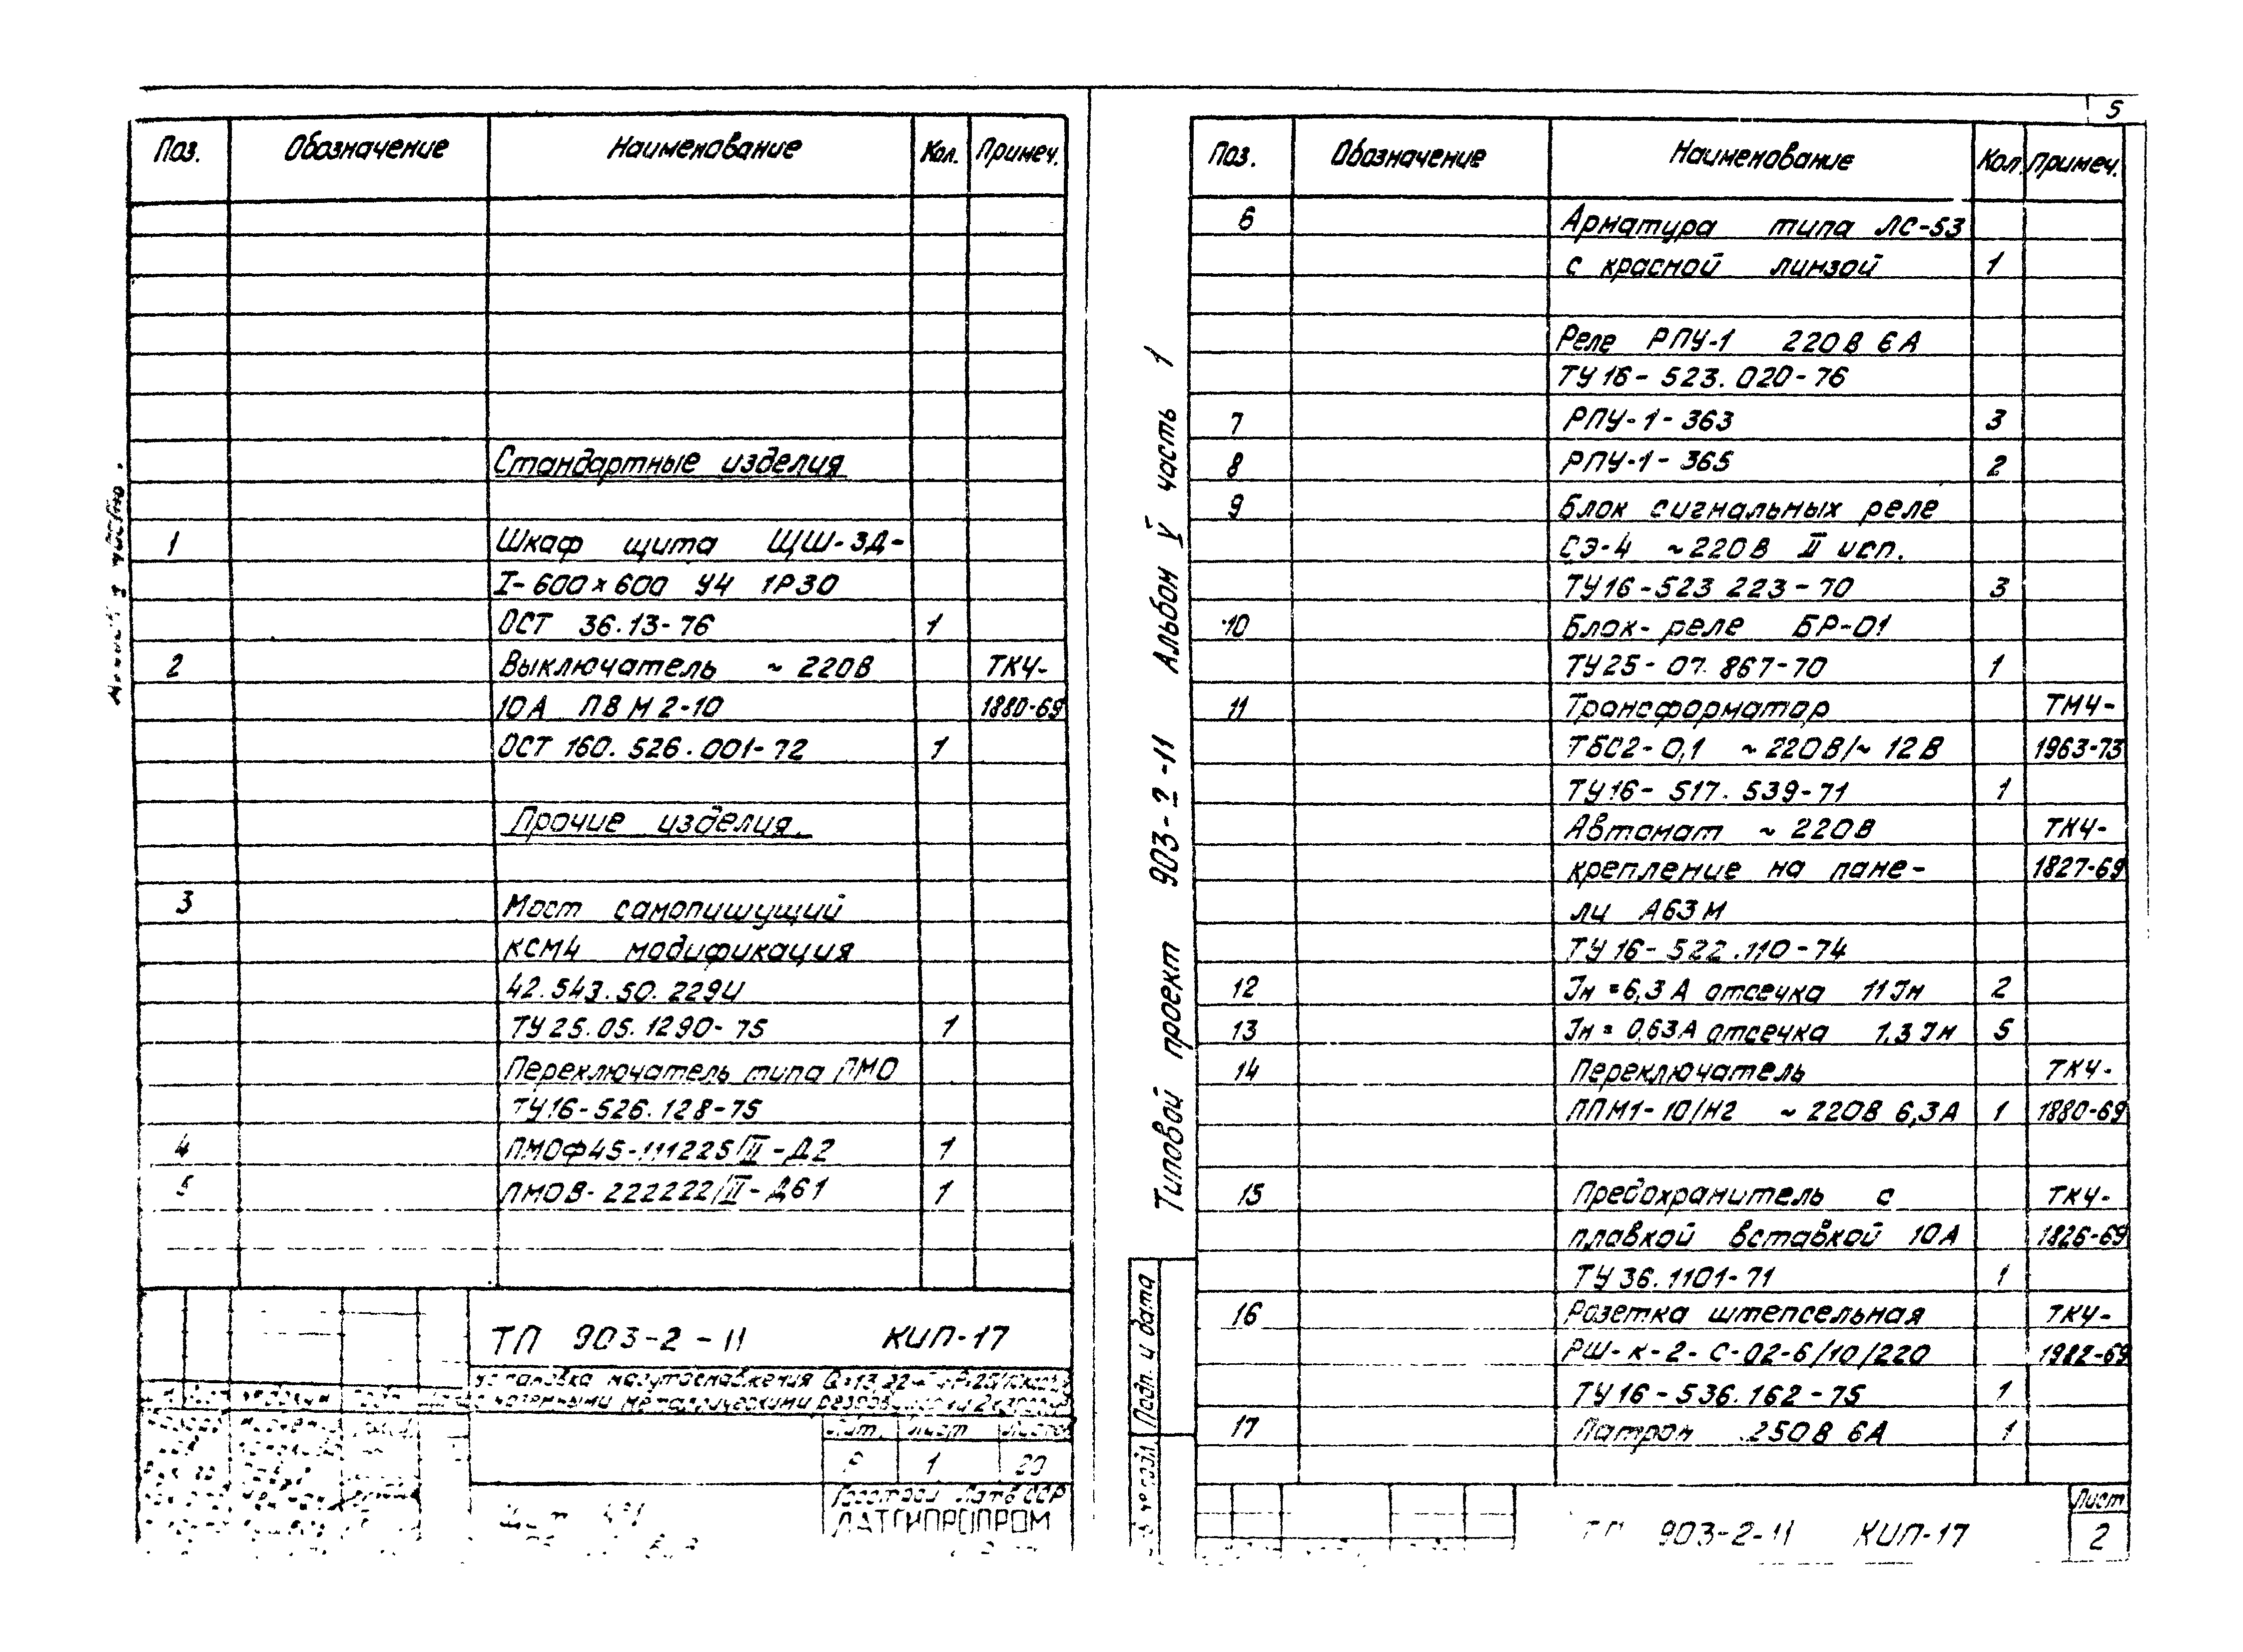 5
Поз. Обозначение Наименование Кол. Примеч.
Стандартные изделия
1 Шкаф щита ЩШ-ЗД-
I-600×600 У4 1Р30
ОСТ 36.13-76 1
2 Выключатель ~ 220В ТКЧ-
10А ПВМ2-10 1880-69
ОСТ 160.526.001-72 1
Прочие изделия.
3 Мост самопишущий
КСМ4 модификация
42.543.50.229
ТУ25.05.1290-75 1
Переключатель типа ПМО
ТУ16-526.128-75
4 ПМОФ45-111225/II-Д2 1
5 ПМОВ-222222/II-Д61 1
ТП 903-2-11 КИП-17
установка мазутоснабжения
наземными металлическими
Лит. Лист
Р 1 20
Щит №1
Госстрой Латв ССР
ЛАТГИПРОПРОМ
Типовой проект 903-2-11 Альбом V часть 1
Подп. и дата
Поз. Обозначение Наименование Кол. Примеч.
6 Арматура типа ЛС-53
с красной линзой 1
Реле РПУ-1 220В 6А
ТУ16-523.020-76
7 РПУ-1-363 3
8 РПУ-1-365 2
9 Блок сигнальных реле
СЭ-4 ~220В II исп.
ТУ16-523 223-70 3
10 Блок-реле БР-01
ТУ25-07.867-70 1
11 Трансформатор ТМЧ-
ТБС2-0,1 ~220В/~12В 1963-73
ТУ16-517.539-71 1
Автомат ~220В ТКЧ-
крепление на пане- 1827-69
ли А63М
ТУ16-522.110-74
12 Iн=6,3А отсечка 11Iн 2
13 Iн=0,63А отсечка 1,3Iн 5
14 Переключатель ТКЧ-
ППМ1-10/Н2 ~220В 6,3А 1 1880-69
15 Предохранитель с ТКЧ-
плавкой вставкой 10А 1826-69
ТУ36.1101-71 1
16 Розетка штепсельная ТКЧ-
РШ-к-2-С-02-6/10/220 1982-69
ТУ16-536.162-75 1
17 Патрон 250В 6А 1
ТП 903-2-11 КИП-17
Лист
2